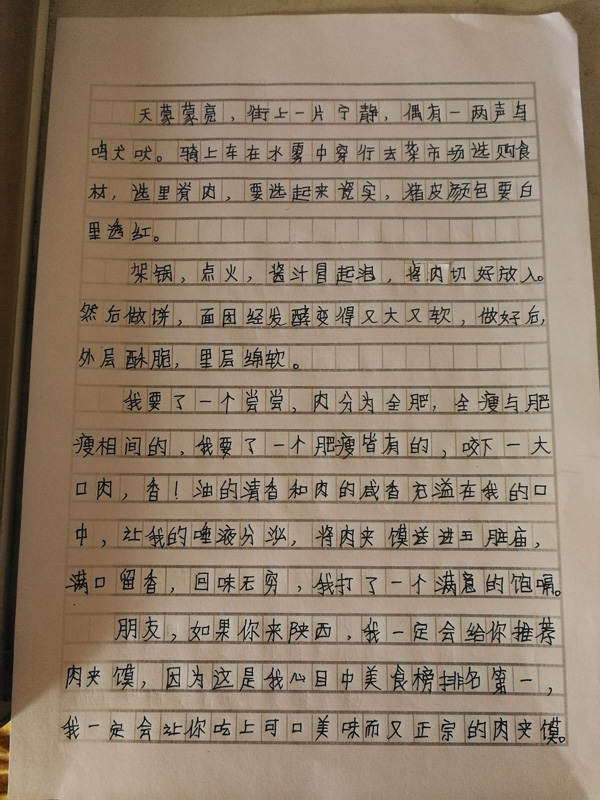 天蒙蒙亮，街上一片宁静，偶有一两声鸟
鸣犬吠。骑上车在水雾中穿行去菜市场选购食
材，选里脊肉，要选起来瓷实，猪皮颜色要白
里透红。
架锅，点火，酱汁冒起泡，将肉切好放入。
然后做饼，面团经发酵变得又大又软，做好后，
外层酥脆，里层绵软。
我要了一个尝尝，肉分为全肥，全瘦与肥
瘦相间的，我要了一个肥瘦皆有的，咬下一大
口肉，香！油的清香和肉的咸香充溢在我的口
中，让我的唾液分泌，将肉夹馍送进五脏庙，
满口留香，回味无穷，我打了一个满意的饱嗝。
朋友，如果你来陕西，我一定会给你推荐
肉夹馍，因为这是我心目中美食榜排名第一，
我一定会让你吃上可口美味而又正宗的肉夹馍。